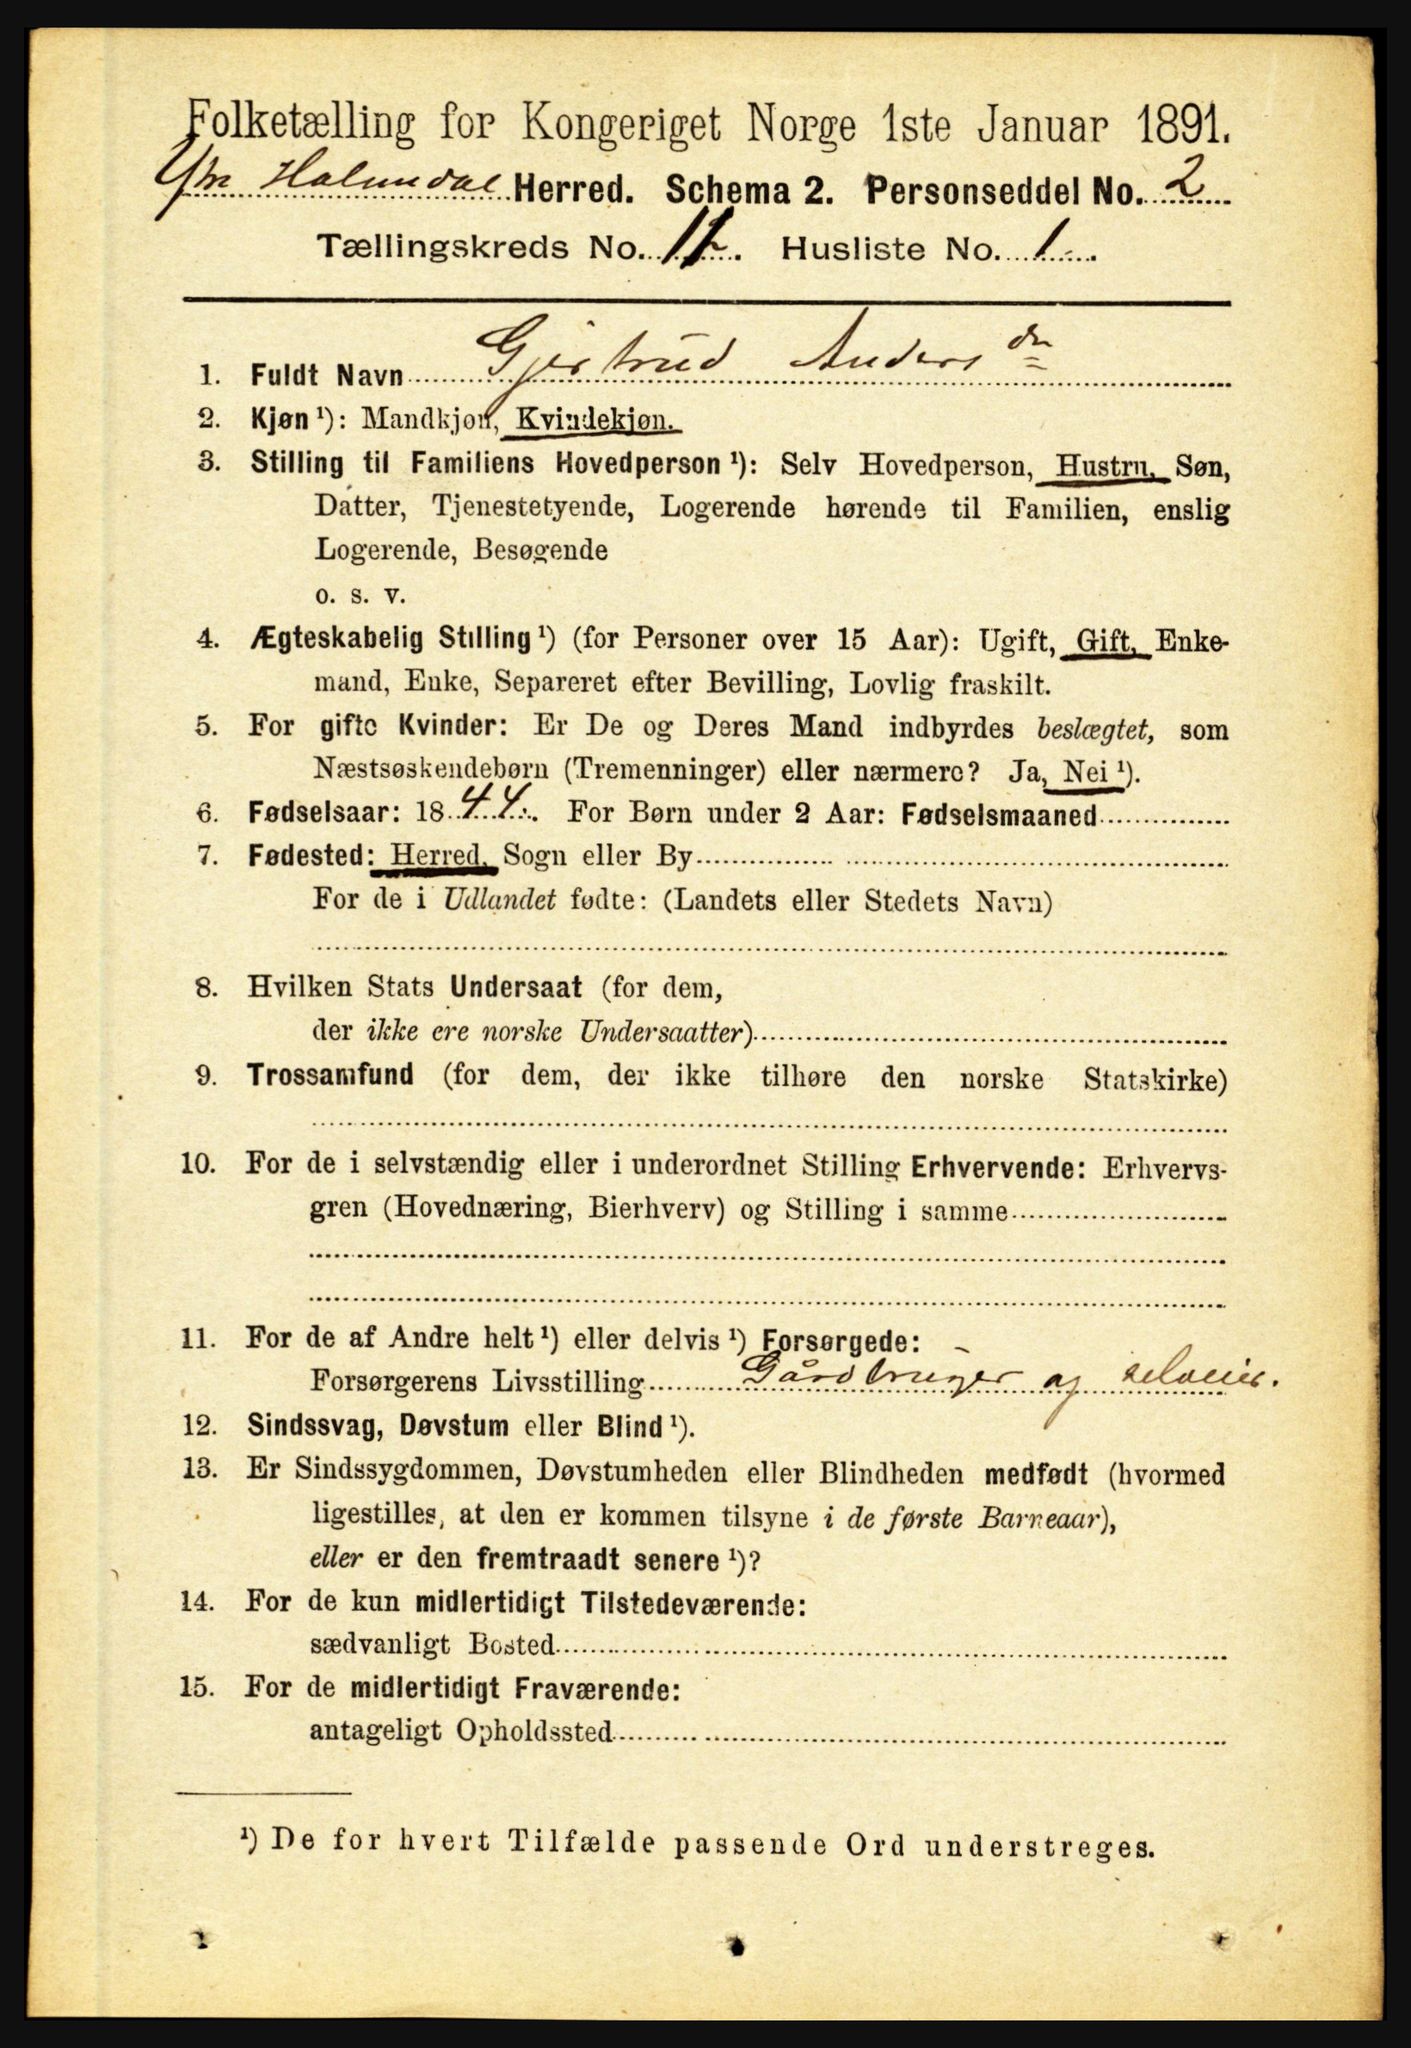 Folketælling for Kongeriget Norge 1ste Januar 1891.
Ytre Holmedal Herred. Schema 2. Personseddel No. 2
Tællingskreds No. 11. Husliste No. 1.
1. Fuldt Navn Gjertrud Andersdn
2. Kjøn ¹): Mandkjøn, Kvindekjøn.
3. Stilling til Familiens Hovedperson ¹): Selv Hovedperson, Hustru, Søn,
Datter, Tjenestetyende, Logerende hørende til Familien, enslig
Logerende, Besøgende
o. s. v.
4. Ægteskabelig Stilling ¹) (for Personer over 15 Aar): Ugift, Gift, Enke-
mand, Enke, Separeret efter Bevilling, Lovlig fraskilt.
5. For gifte Kvinder: Er De og Deres Mand indbyrdes beslægtet, som
Næstsøskendebørn (Tremenninger) eller nærmere? Ja, Nei ¹).
6. Fødselsaar: 1844. For Børn under 2 Aar: Fødselsmaaned
7. Fødested: Herred, Sogn eller By
For de i Udlandet fødte: (Landets eller Stedets Navn)
8. Hvilken Stats Undersaat (for dem,
der ikke ere norske Undersaatter)
9. Trossamfund (for dem, der ikke tilhøre den norske Statskirke)
10. For de i selvstændig eller i underordnet Stilling Erhvervende: Erhvervs-
gren (Hovednæring, Bierhverv) og Stilling i samme
11. For de af Andre helt ¹) eller delvis ¹) Forsørgede:
Forsørgerens Livsstilling Gårdbruger og selveier.
12. Sindssvag, Døvstum eller Blind ¹).
13. Er Sindssygdommen, Døvstumheden eller Blindheden medfødt (hvormed
ligestilles, at den er kommen tilsyne i de første Barneaar),
eller er den fremtraadt senere ¹)?
14. For de kun midlertidigt Tilstedeværende:
sædvanligt Bosted
15. For de midlertidigt Fraværende:
antageligt Opholdssted
¹) De for hvert Tilfælde passende Ord understreges.